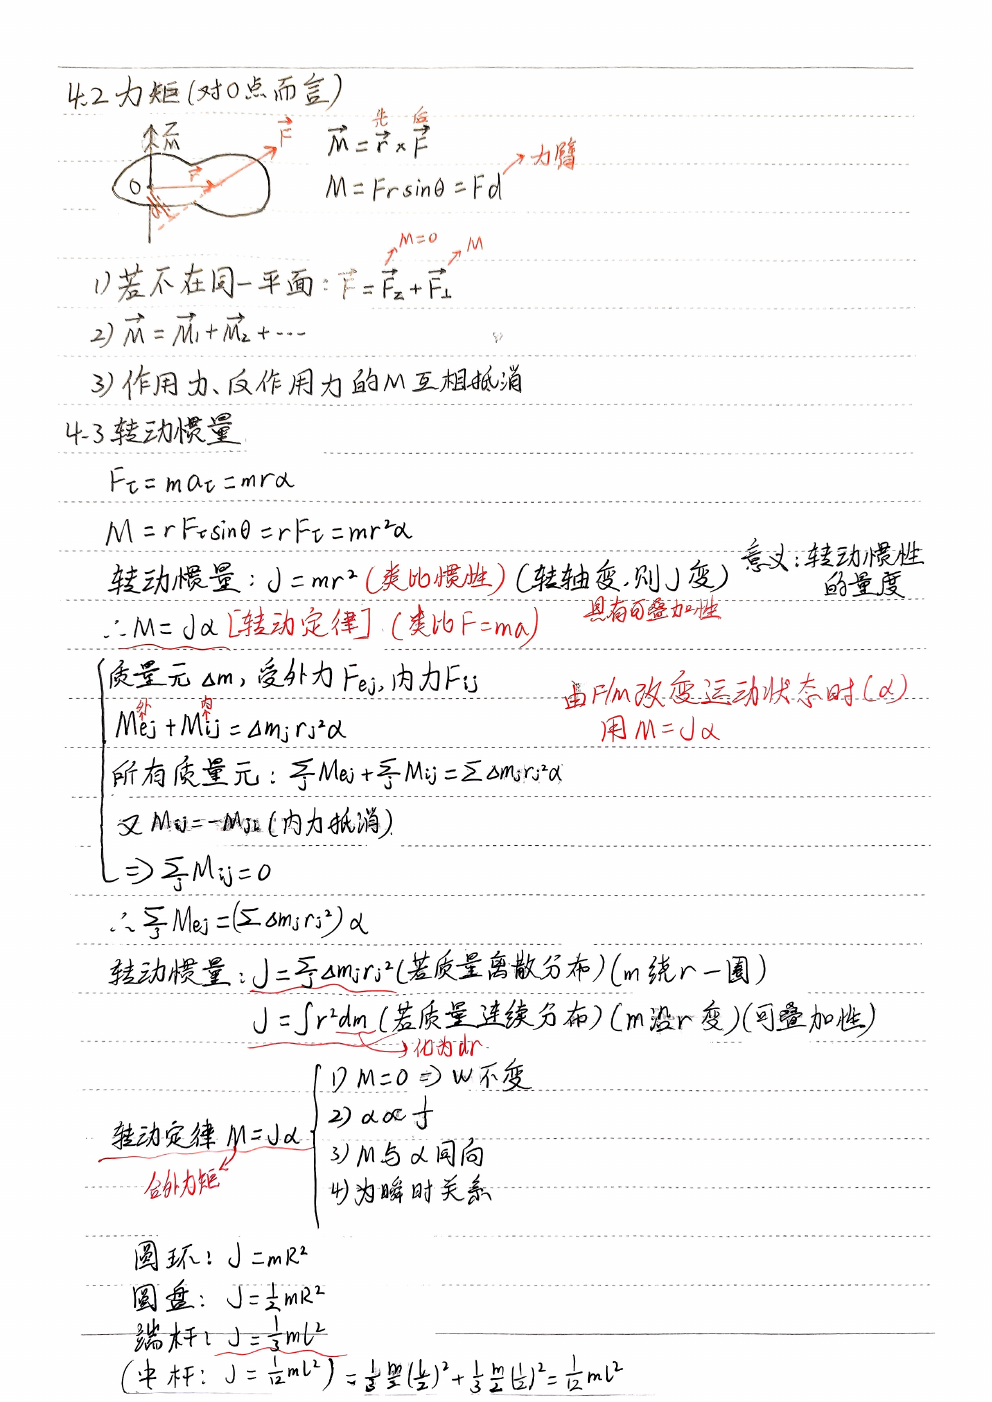 4.2 力矩(对O点而言)
Z
M⃗
F⃗
r⃗
O
d
先 后
M⃗ = r⃗ × F⃗
M = Frsinθ = Fd
力臂
M=0
M
1) 若不在同一平面: F⃗ = F⃗z + F⃗⊥
2) M⃗ = M⃗₁ + M⃗₂ + ⋯
3) 作用力、反作用力的M互相抵消
4.3 转动惯量
Fτ = maτ = mrα
M = rFτsinθ = rFτ = mr²α
转动惯量: J = mr² (类比惯性) (转轴变,则J变)
意义: 转动惯性
的量度
具有可叠加性
∴ M = Jα [转动定律] (类比F=ma)
质量元Δm, 受外力Fej, 内力Fij
由F/m改变运动状态时(α)
用M=Jα
外 内
Mej + Mij = Δmjrj²α
所有质量元: ∑j Mej + ∑j Mij = ∑Δmjrj²α
又 Mij = -Mji (内力抵消)
⇒ ∑j Mij = 0
∴ ∑j Mej = (∑Δmjrj²)α
转动惯量: J = ∑j Δmjrj² (若质量离散分布) (m绕r一圈)
J = ∫r²dm (若质量连续分布) (m沿r变) (可叠加性)
化为dr
转动定律 M=Jα
合外力矩
1) M=0 ⇒ W不变
2) α∝1/J
3) M与α同向
4) 为瞬时关系
圆环: J = mR²
圆盘: J = 1/2 mR²
端杆: J = 1/3 ml²
(中杆: J = 1/12 ml²) = 1/3 m/2 (l/2)² + 1/3 m/2 (l/2)² = 1/12 ml²